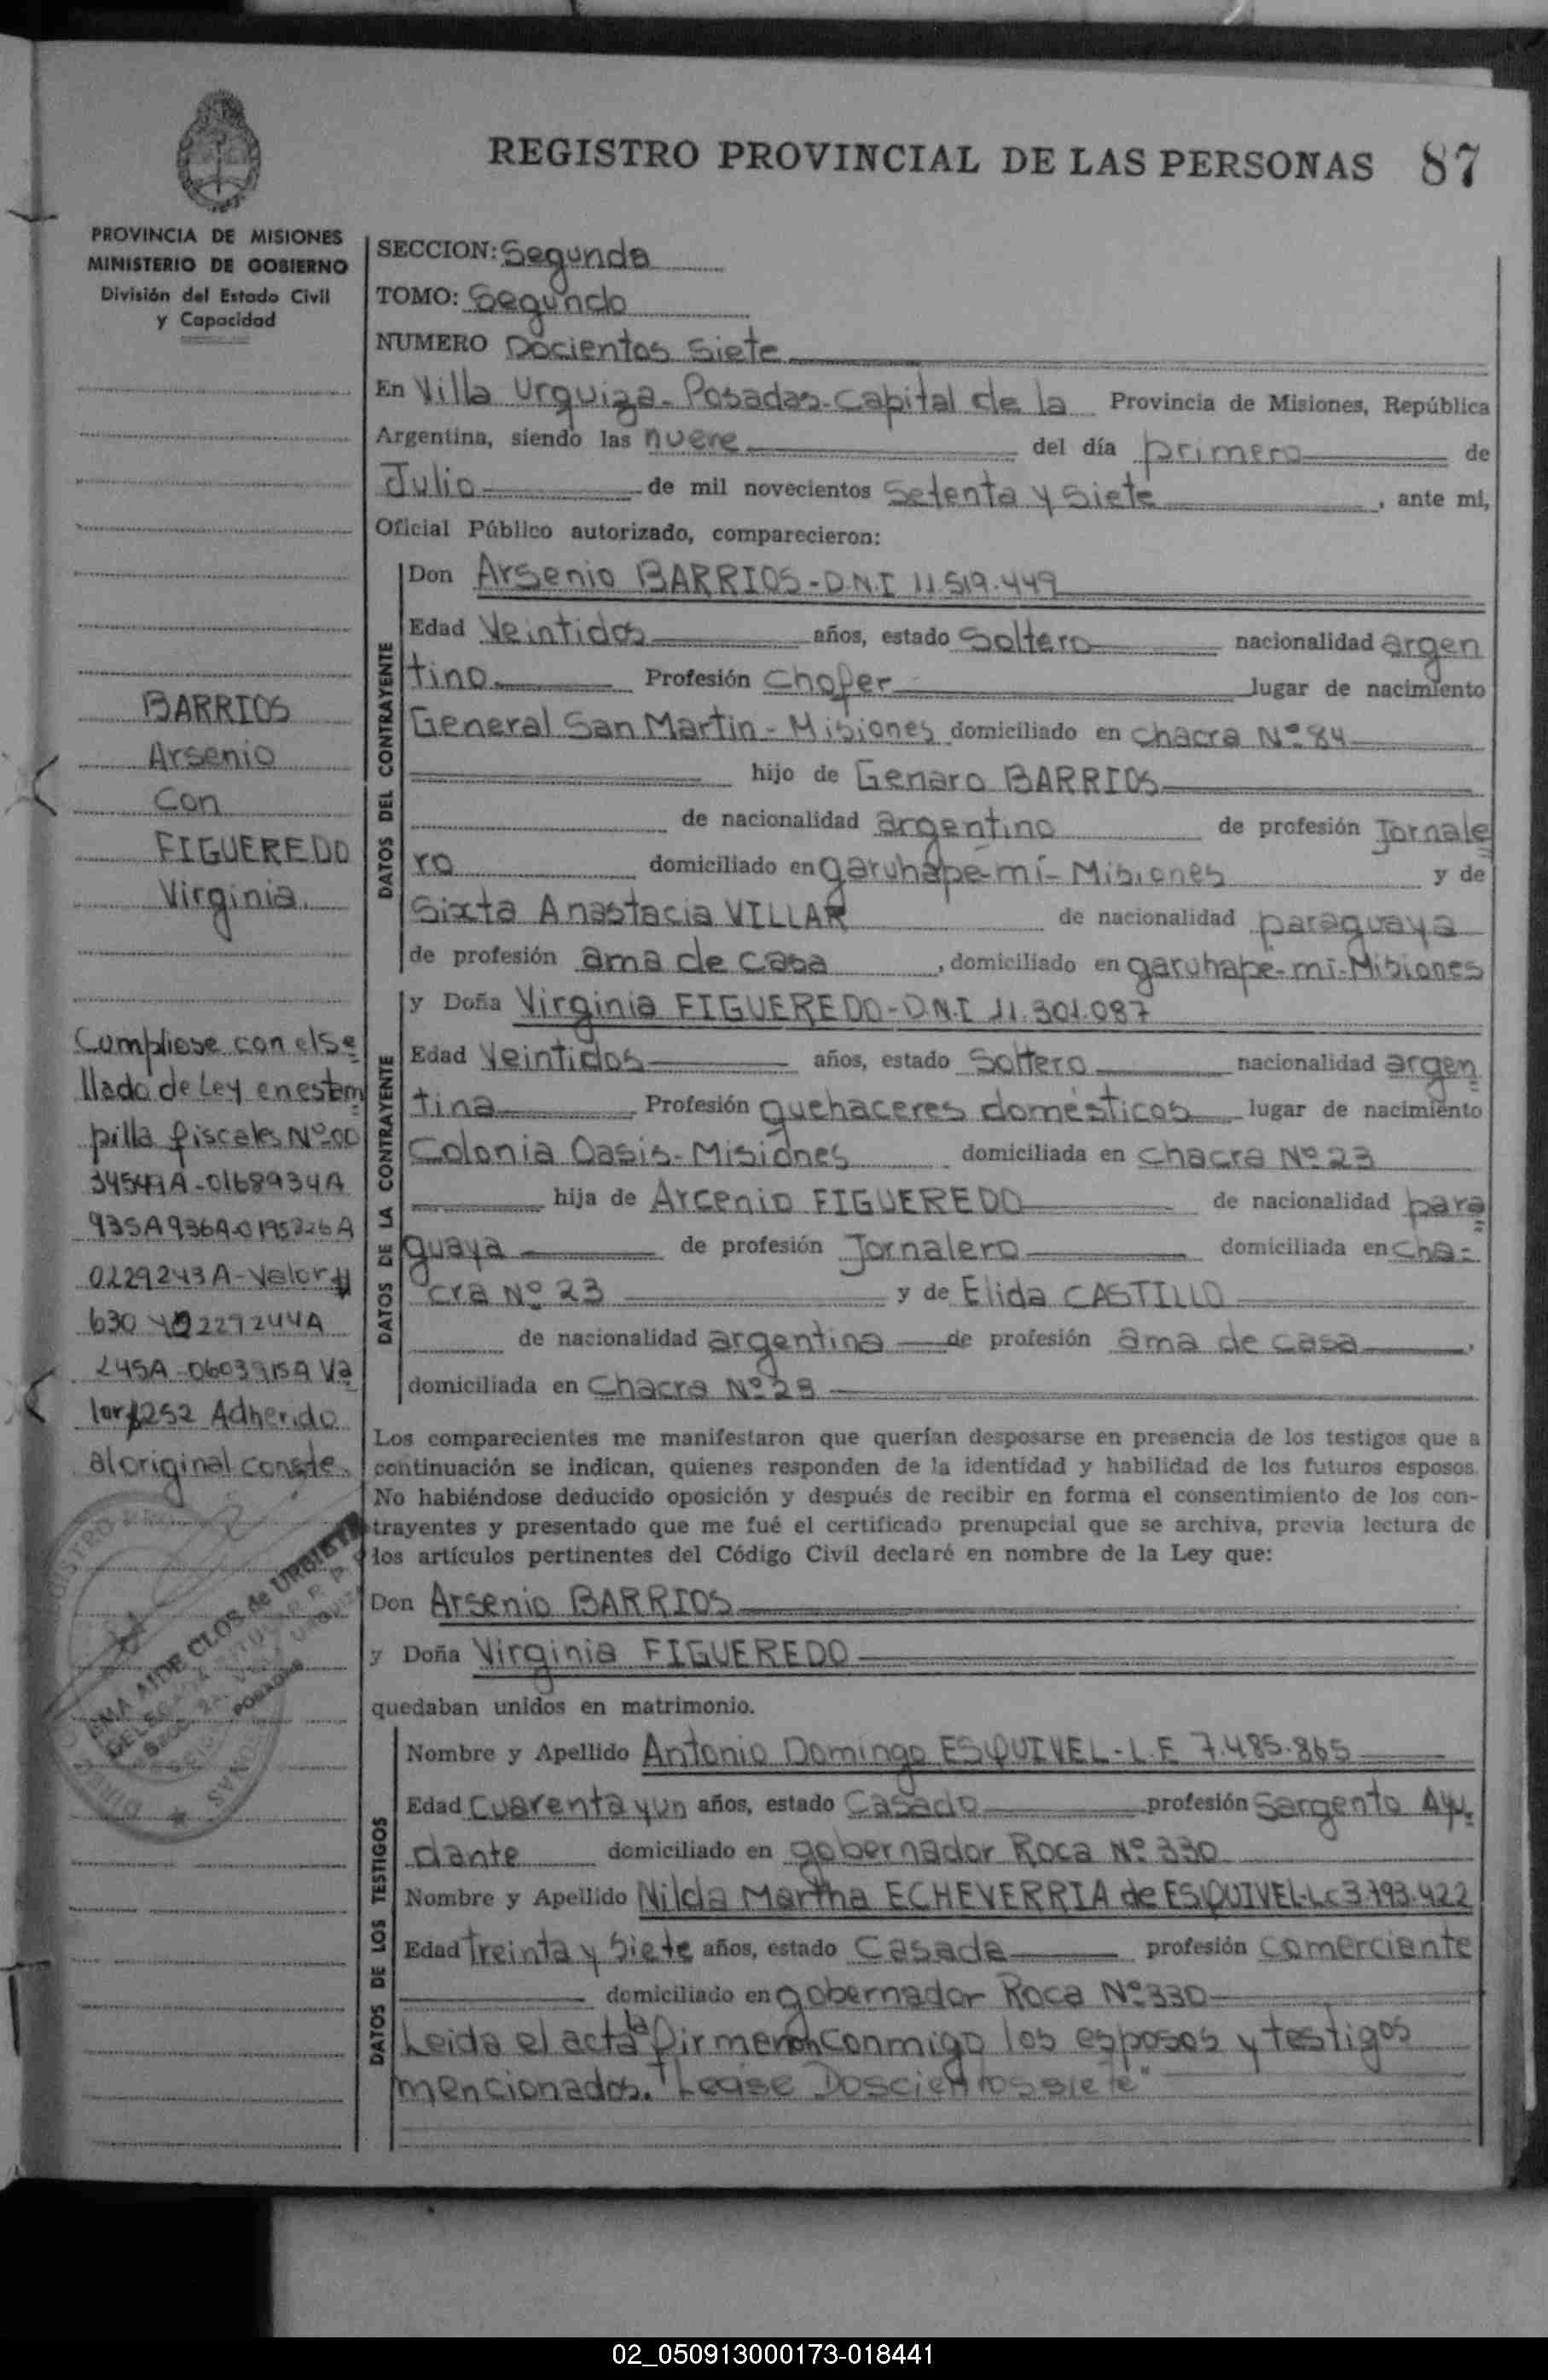 REGISTRO PROVINCIAL DE LAS PERSONAS 87
PROVINCIA DE MISIONES
MINISTERIO DE GOBIERNO
División del Estado Civil
y Capacidad
BARRIOS
Arsenio
Con
FIGUEREDO
Virginia.
Cumpliose con el Se
llado de Ley en estam
pilla fiscales Nº 00
34549A-0168934A
935A936A-0195226A
0229243A-Valor $
630 y 0227244A
245A-0603915A Va
lor $252 Adherido
al original conste.
EMA AIDE CLOS de URBIETA
POSADAS
SECCION: Segunda
TOMO: Segundo
NUMERO Docientos Siete
En Villa Urquiza-Posadas-Capital de la Provincia de Misiones, República
Argentina, siendo las nueve del día primero de
Julio de mil novecientos Setenta y Siete, ante mi,
Oficial Público autorizado, comparecieron:
DATOS DEL CONTRAYENTE
Don Arsenio BARRIOS-D.N.I 11.519.449
Edad Veintidos años, estado Soltero nacionalidad argen
tino Profesión Chofer lugar de nacimiento
General San Martin-Misiones domiciliado en chacra Nº 84
hijo de Genaro BARRIOS
de nacionalidad argentino de profesión Jornale
ro domiciliado en garuhape-mí-Misiones y de
Sixta Anastacia VILLAR de nacionalidad paraguaya
de profesión ama de casa, domiciliado en garuhape-mi-Misiones
DATOS DE LA CONTRAYENTE
y Doña Virginia FIGUEREDO-D.N.I 11.301.087
Edad Veintidos años, estado Soltero nacionalidad argen
tina Profesión quehaceres domésticos lugar de nacimiento
Colonia Oasis-Misiones domiciliada en Chacra Nº 23
hija de Arcenio FIGUEREDO de nacionalidad para
guaya de profesión Jornalero domiciliada en Cha-
cra Nº 23 y de Elida CASTILLO
de nacionalidad argentina de profesión ama de casa,
domiciliada en Chacra Nº 23
Los comparecientes me manifestaron que querían desposarse en presencia de los testigos que a
continuación se indican, quienes responden de la identidad y habilidad de los futuros esposos.
No habiéndose deducido oposición y después de recibir en forma el consentimiento de los con-
trayentes y presentado que me fué el certificado prenupcial que se archiva, previa lectura de
los artículos pertinentes del Código Civil declaré en nombre de la Ley que:
Don Arsenio BARRIOS
y Doña Virginia FIGUEREDO
quedaban unidos en matrimonio.
DATOS DE LOS TESTIGOS
Nombre y Apellido Antonio Domingo ESQUIVEL-L.E 7.485.865
Edad Cuarenta y un años, estado Casado profesión Sargento Ayu-
dante domiciliado en gobernador Roca Nº 330
Nombre y Apellido Nilda Martha ECHEVERRIA de ESQUIVEL-L.C 3.793.422
Edad treinta y Siete años, estado Casada profesión comerciante
domiciliado en gobernador Roca Nº 330
Leida el acta la firmaron conmigo los esposos y testigos
mencionados. "Lease Doscientos siete"
02_050913000173-018441